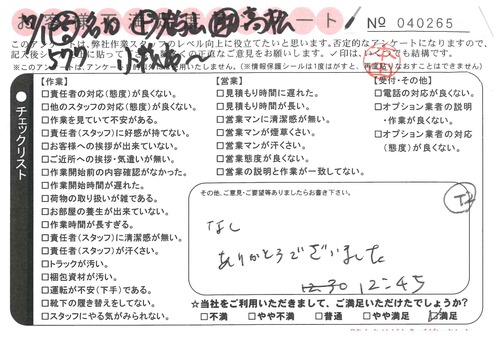 ート No 040265
このアンケートは、弊社作業スタッフのレベル向上に役立てたいと思います。否定的なアンケートになりますので、
記入後シ
の正直なご意見をお聞かせ下さい。✓印は、いくつでも結構です。
577
※このアンケートは、
いたしません。（※情報保護シールは1度はがすと、再度貼りなおすことはできません）
チェックリスト
【作業】
□責任者の対応（態度）が良くない。
□他のスタッフの対応（態度）が良くない。
□作業を見ていて不安がある。
□責任者（スタッフ）に好感が持てない。
□お客様への挨拶が出来ていない。
□ご近所への挨拶・気遣いが無い。
□作業開始前の内容確認がなかった。
□作業開始時間が遅れた。
□荷物の取り扱いが雑である。
□お部屋の養生が出来ていない。
□作業時間が長すぎる。
□責任者（スタッフ）に清潔感が無い。
□責任者（スタッフ）が汗くさい。
□トラックが汚い。
□梱包資材が汚い。
□運転が不安（下手）である。
□靴下の履き替えをしてない。
□スタッフにやる気がみられない。
【営業】
□見積もり時間に遅れた。
□見積もり時間が長い。
□営業マンに清潔感が無い。
□営業マンが煙草くさい。
□営業マンが汗くさい。
□営業態度が良くない。
□営業の説明と作業が一致してない。
【受付・その他】
□電話の対応が良くない。
□オプション業者の説明
・作業が良くない。
□オプション業者の対応
（態度）が良くない。
その他、ご意見・ご要望等ありましたらお書き下さい。
なし
ありがとうございました
12:30 12:45
☆当社をご利用いただきまして、ご満足いただけたでしょうか？
□不満 □やや不満 □普通 □やや満足 ☑満足